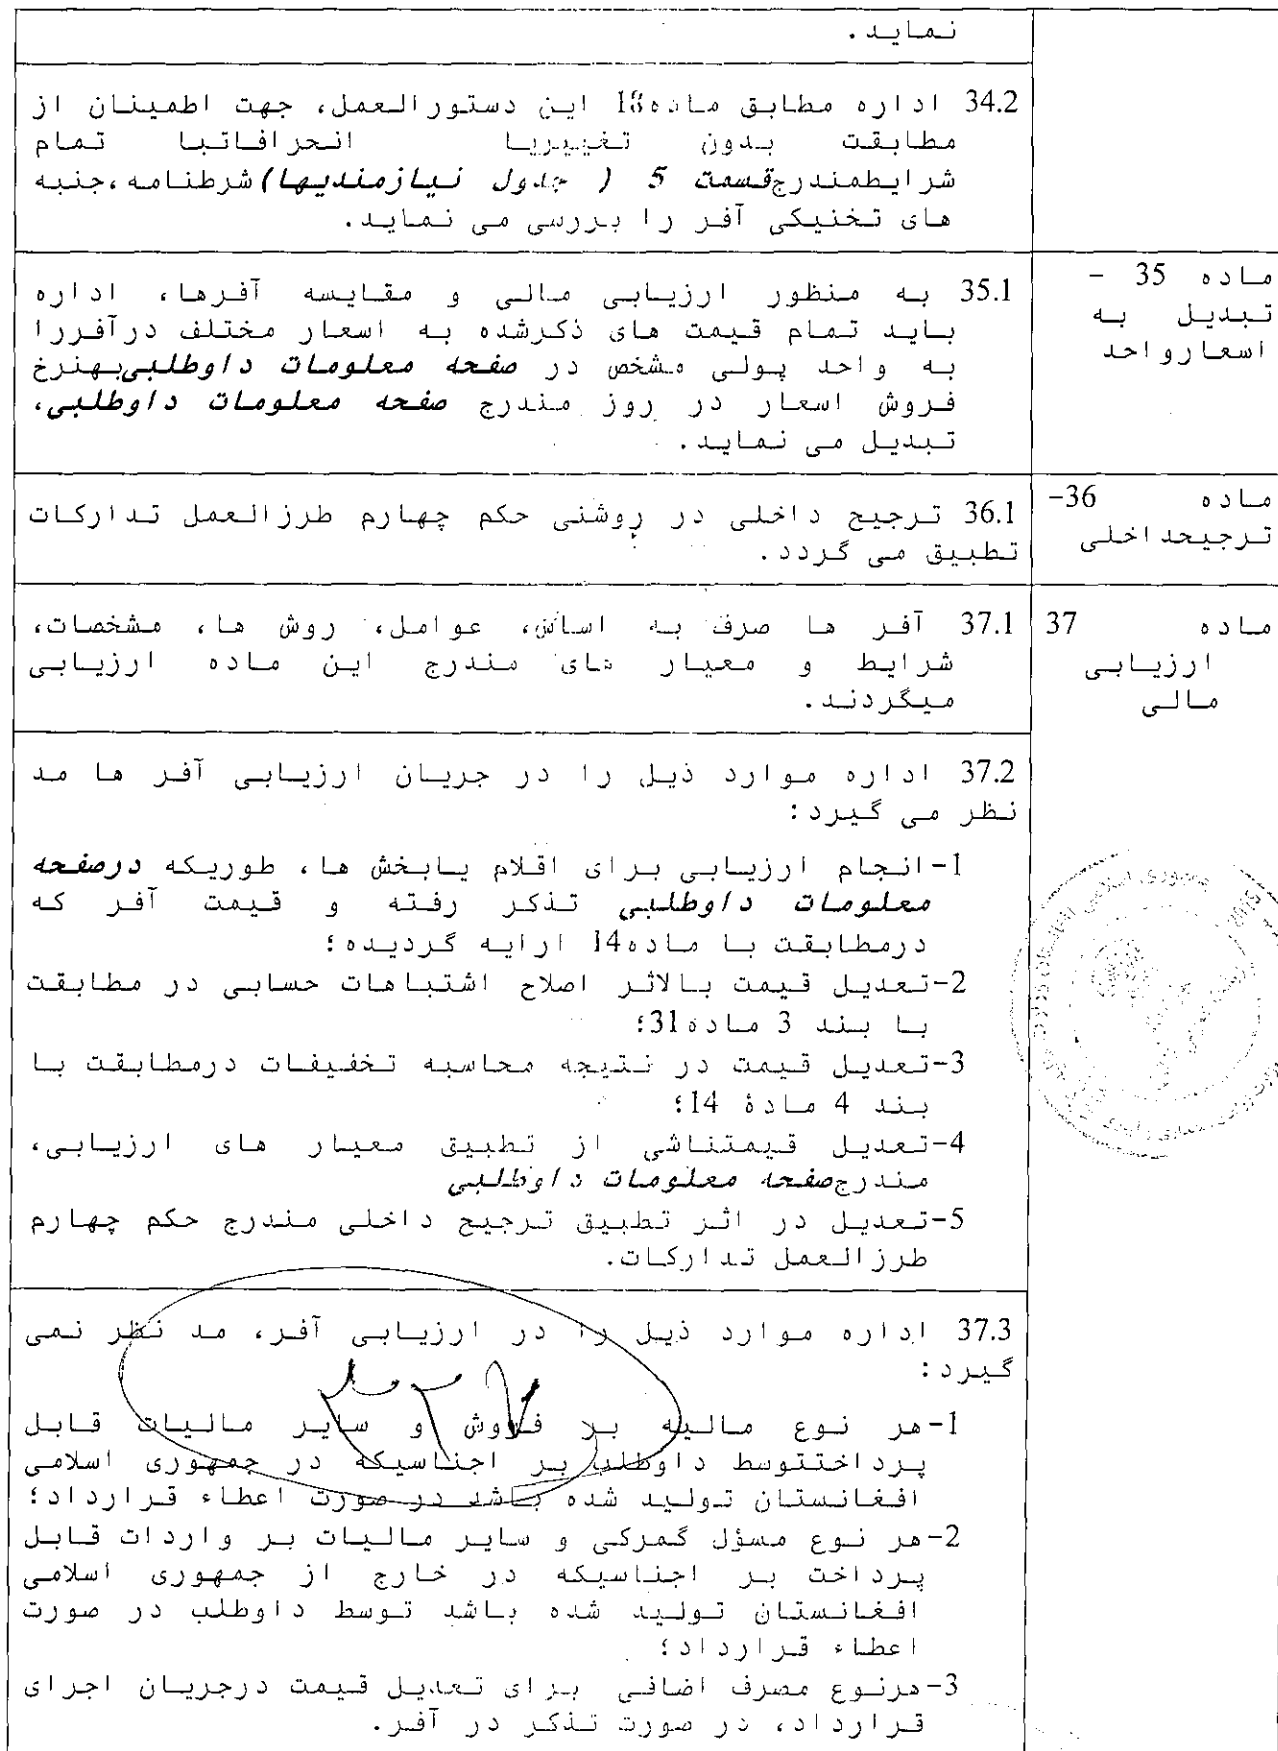 نماید.
34.2 اداره مطابق ماده18 این دستورالعمل، جهت اطمینان از
مطابقت بدون تغییریا انحرافاتبا تمام
شرایطمندرجقسمت 5 ( جدول نیازمندیها)شرطنامه،جنبه
های تخنیکی آفر را بررسی می نماید.
ماده 35 -
تبدیل به
اسعارواحد
35.1 به منظور ارزیابی مالی و مقایسه آفرها، اداره
باید تمام قیمت های ذکرشده به اسعار مختلف درآفررا
به واحد پولی مشخص در صفحه معلومات داوطلبیبهنرخ
فروش اسعار در روز مندرج صفحه معلومات داوطلبی،
تبدیل می نماید.
ماده 36-
ترجیحداخلی
36.1 ترجیح داخلی در روشنی حکم چهارم طرزالعمل تدارکات
تطبیق می گردد.
ماده 37
ارزیابی
مالی
37.1 آفر ها صرف به اساس، عوامل، روش ها، مشخصات،
شرایط و معیار های مندرج این ماده ارزیابی
میگردند.
37.2 اداره موارد ذیل را در جریان ارزیابی آفر ها مد
نظر می گیرد:
1-انجام ارزیابی برای اقلام یابخش ها، طوریکه درصفحه
معلومات داوطلبی تذکر رفته و قیمت آفر که
درمطابقت با ماده14 ارایه گردیده؛
2-تعدیل قیمت بالاثر اصلاح اشتباهات حسابی در مطابقت
با بند 3 ماده31؛
3-تعدیل قیمت در نتیجه محاسبه تخفیفات درمطابقت با
بند 4 مادۀ 14؛
4-تعدیل قیمتناشی از تطبیق معیار های ارزیابی،
مندرجصفحه معلومات داوطلبی
5-تعدیل در اثر تطبیق ترجیح داخلی مندرج حکم چهارم
طرزالعمل تدارکات.
37.3 اداره موارد ذیل را در ارزیابی آفر، مد نظر نمی
گیرد:
1-هر نوع مالیه بر فروش و سایر مالیات قابل
پرداختتوسط داوطلب بر اجناسیکه در جمهوری اسلامی
افغانستان تولید شده باشد در صورت اعطاء قرارداد؛
2-هر نوع مسؤل گمرکی و سایر مالیات بر واردات قابل
پرداخت بر اجناسیکه در خارج از جمهوری اسلامی
افغانستان تولید شده باشد توسط داوطلب در صورت
اعطاء قرارداد؛
3-هرنوع مصرف اضافی برای تعدیل قیمت درجریان اجرای
قرارداد، در صورت تذکر در آفر.